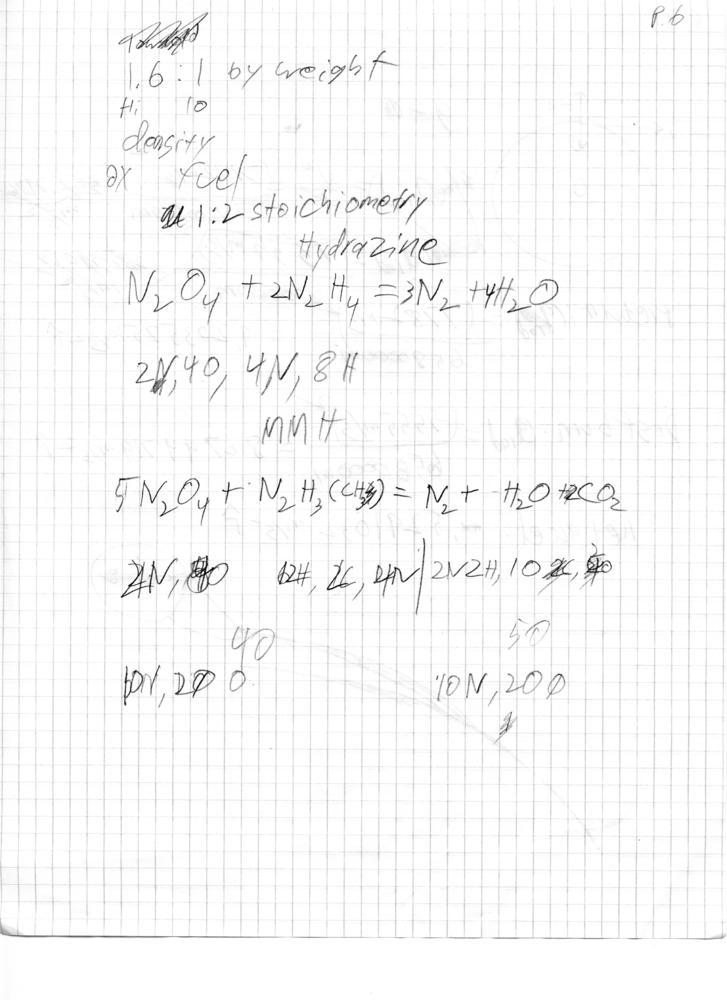 P.6
1.6:1 by weight
Hi 10
density
ox fuel
1:2 stoichiometry
Hydrazine
N₂O₄ + 2N₂H₄ = 3N₂ + 4H₂O
2N, 4O, 4N, 8H
MMH
5N₂O₄ + N₂H₃(CH₃) = N₂ + H₂O + 2CO₂
12H, 2C, 4N | 2N2H, 1O
4O 5O
10N, 20 O 10N, 20O